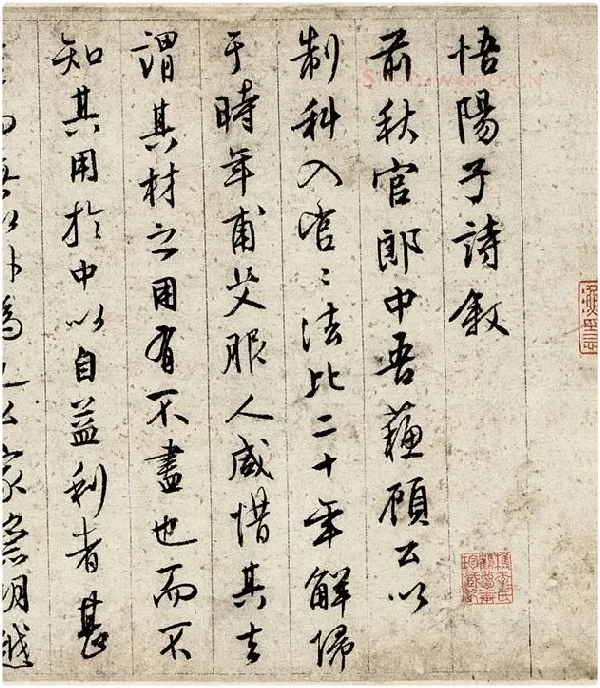 悟陽子詩敘
前秋官郎中吾蘇顧公以
制科入官〻法比二十年解歸
于時年甫艾服人咸惜其去
謂其材之用有不盡也而不
知其用於中以自益利者甚